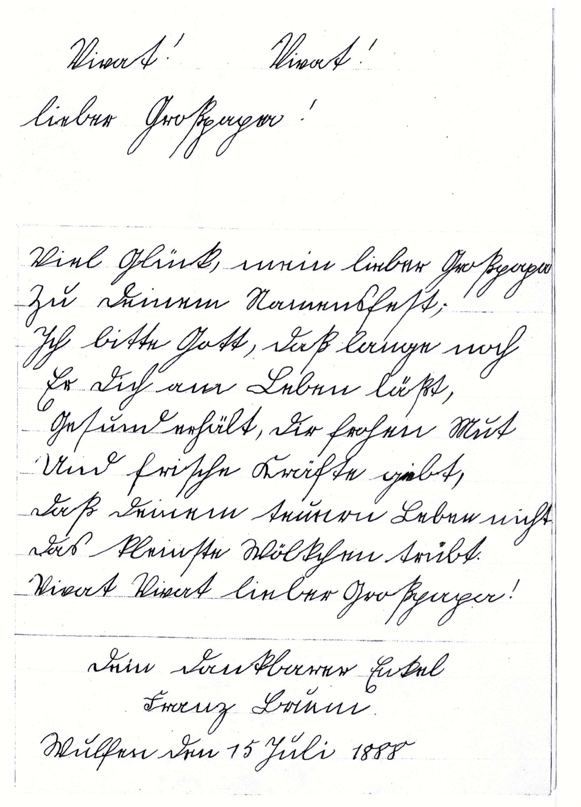 Vivat! Vivat!
lieber Großpapa!
Viel Glück, mein lieber Großpapa
Zu Deinem Namensfest;
Ich bitte Gott, daß lange noch
Er Dich am Leben läßt,
Gesund erhält, Dir frohen Mut
Und frische Kräfte gibt,
Daß Deinem teuren Leben nicht
Das kleinste Wölkchen trübt.
Vivat Vivat lieber Großpapa!
Dein dankbarer Enkel
Franz
Wulfen den 15 Juli 1888